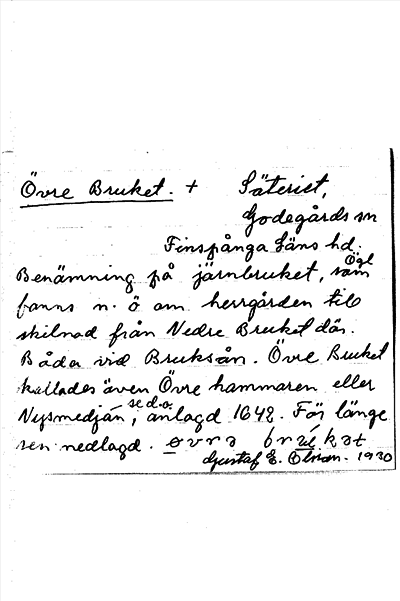 Övre Bruket. + Säteriet,
Godegårds sn
Finspånga Läns hd.
Ögl
Benämning på järnbruket, som
fanns n. ö om herrgården til
skilnad från Nedre Bruket där.
Båda vid Bruksån. Övre Bruket
kallades även Övre hammaren eller
se d.o
Nysmedjan, anlagd 1642. För länge
sen nedlagd. øvrə brʉ́kət
Gustaf E. Olsson. 1930